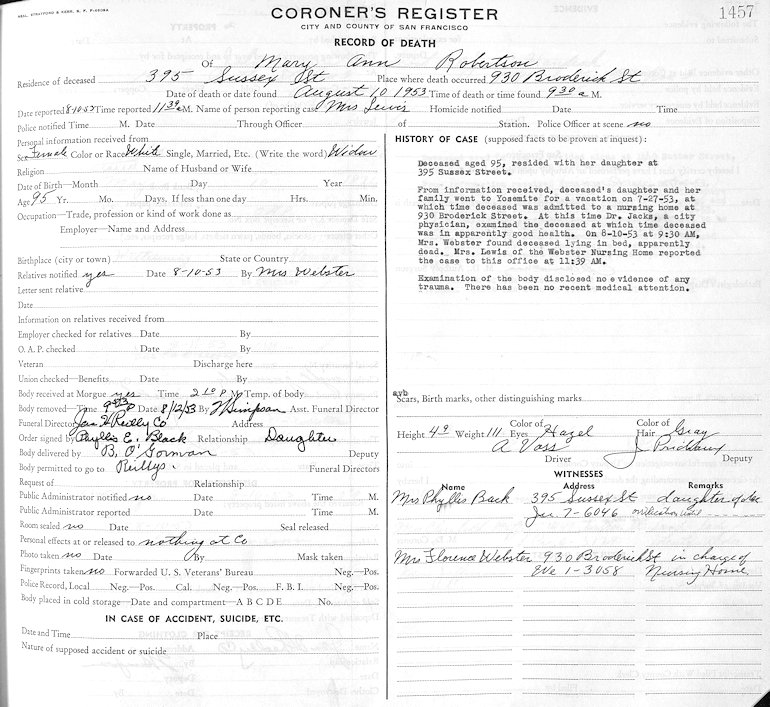 NEAL, STRATFORD & KERR, S. F.
CORONER'S REGISTER
1457
CITY AND COUNTY OF SAN FRANCISCO
RECORD OF DEATH
Of Mary Ann Robertson
Residence of deceased 395 Sussex St Place where death occurred 930 Broderick St
Date of death or date found August 10 1953 Time of death or time found 9 30 a M.
Date reported 8-10-53 Time reported 11 39 a M. Name of person reporting case Mrs Lewis Homicide notified Date Time
Police notified Time M. Date Through Officer of Station. Police Officer at scene no
Personal information received from
Sex Female Color or Race White Single, Married, Etc. (Write the word) Widow
Religion Name of Husband or Wife
Date of Birth—Month Day Year
Age 95 Yr. Mo. Days. If less than one day Hrs. Min.
Occupation—Trade, profession or kind of work done as
Employer—Name and Address
Birthplace (city or town) State or Country
Relatives notified yes Date 8-10-53 By Mrs Webster
Letter sent relative
Date
Information on relatives received from
Employer checked for relatives Date By
O. A. P. checked Date By
Veteran Discharge here
Union checked—Benefits Date By
Body received at Morgue yes Time 2 10 P M. Temp. of body
Body removed—Time P Date 8/12/53 By Simpson Asst. Funeral Director
Funeral Director Jas H Reilly Co Address
Order signed by Phyllis E. Back Relationship Daughter
Body delivered by B. O'Gorman Deputy
Body permitted to go to Reillys. Funeral Directors
Request of Relationship
Public Administrator notified no Date Time M.
Public Administrator reported Date Time M.
Room sealed no Date Seal released
Personal effects at or released to nothing at Co
Photo taken no Date By Mask taken
Fingerprints taken no Forwarded U. S. Veterans' Bureau Neg.—Pos.
Police Record, Local Neg.—Pos. Cal. Neg.—Pos. F. B. I. Neg.—Pos.
Body placed in cold storage—Date and compartment—A B C D E No.
IN CASE OF ACCIDENT, SUICIDE, ETC.
Date and Time Place
Nature of supposed accident or suicide
HISTORY OF CASE (supposed facts to be proven at inquest):
Deceased aged 95, resided with her daughter at
395 Sussex Street.
From information received, deceased's daughter and her
family went to Yosemite for a vacation on 7-27-53, at
which time deceased was admitted to a nursing home at
930 Broderick Street. At this time Dr. Jacks, a city
physician, examined the deceased at which time deceased
was in apparently good health. On 8-10-53 at 9:30 AM,
Mrs. Webster found deceased lying in bed, apparently
dead. Mrs. Lewis of the Webster Nursing Home reported
the case to this office at 11:39 AM.
Examination of the body disclosed no evidence of any
trauma. There has been no recent medical attention.
ayb
Scars, Birth marks, other distinguishing marks
Height 4 9 Weight 111 Color of Eyes Hazel Color of Hair Gray
A Voss Driver J Prideaux Deputy
WITNESSES
Name Address Remarks
Mrs Phyllis Back 395 Sussex St daughter of dec
Ju 7-6046
Mrs Florence Webster 930 Broderick St in charge of
We 1-3058 Nursing Home